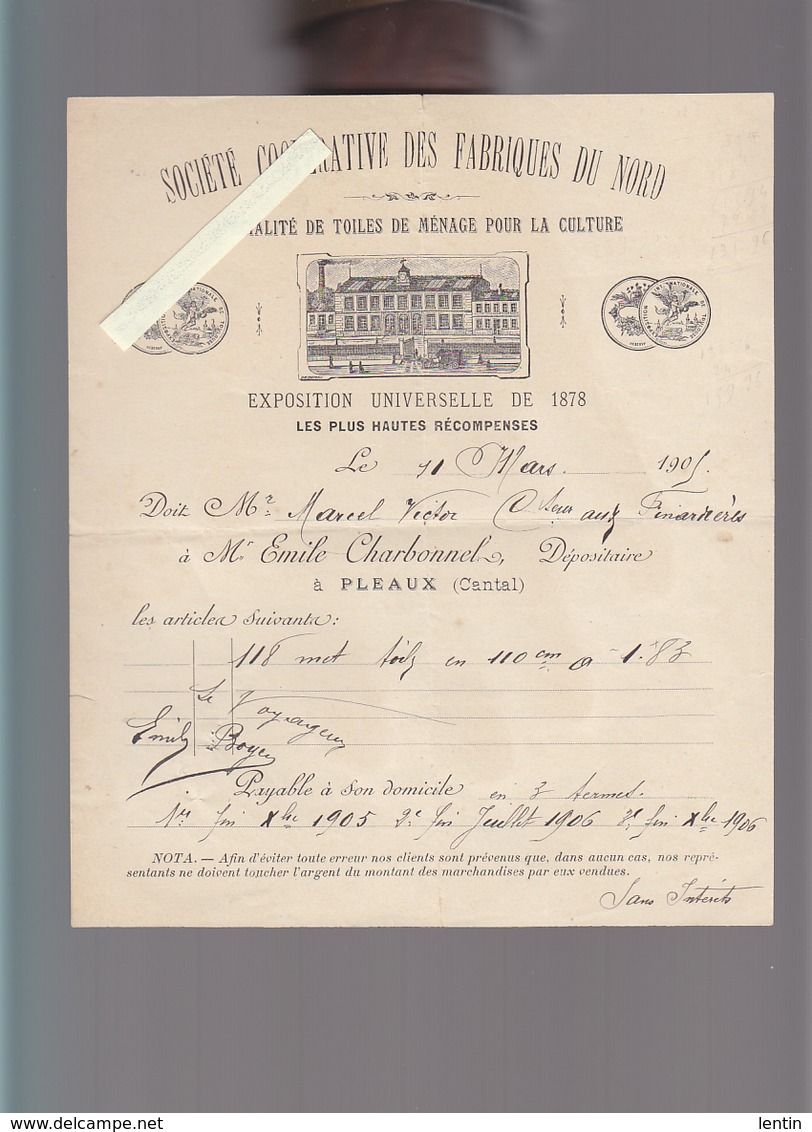 SOCIÉTÉ COOPÉRATIVE DES FABRIQUES DU NORD
IALITÉ DE TOILES DE MÉNAGE POUR LA CULTURE
EXPOSITION UNIVERSELLE DE 1878
LES PLUS HAUTES RÉCOMPENSES
Le 11 Mars 1905
Doit Mr Marcel Victor aux
à Mr Emile Charbonnel, Dépositaire
à PLEAUX (Cantal)
les articles suivants:
118 met toile en 110 cm a 1.83
Le Voyageur
Emile Boyer
Payable à son domicile en 3 termes.
1er fin Xbre 1905 2e fin Juillet 1906 3e fin Xbre 1906
NOTA. — Afin d'éviter toute erreur nos clients sont prévenus que, dans aucun cas, nos repré-
sentants ne doivent toucher l'argent du montant des marchandises par eux vendues.
Sans Intérêts
delcampe.net
lentin